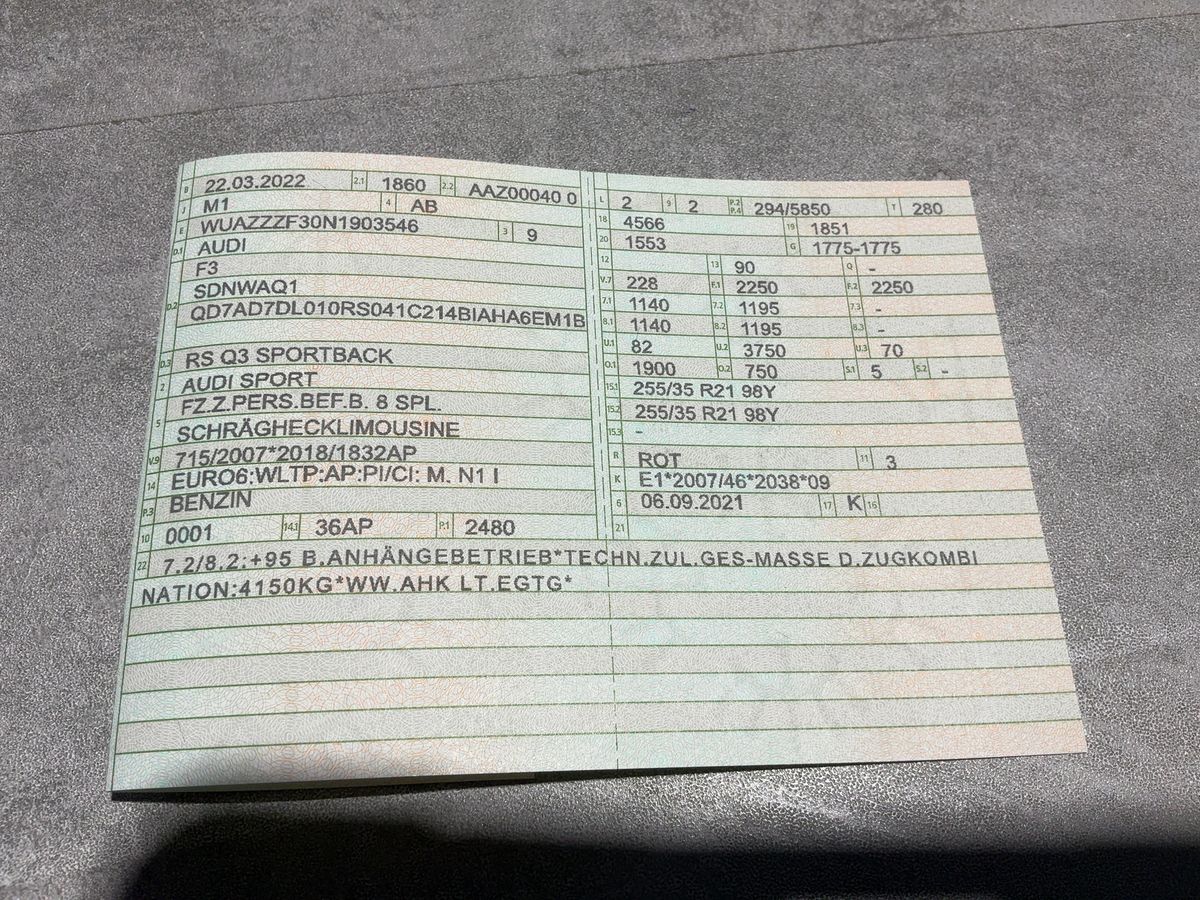 B 22.03.2022 2.1 1860 2.2 AAZ00040 0
J M1 4 AB
E WUAZZZF30N1903546 3 9
D.1 AUDI
F3
D.2 SDNWAQ1
QD7AD7DL010RS041C214BIAHA6EM1B
D.3 RS Q3 SPORTBACK
2 AUDI SPORT
5 FZ.Z.PERS.BEF.B. 8 SPL.
SCHRÄGHECKLIMOUSINE
V.9 715/2007*2018/1832AP
14 EURO6:WLTP:AP:PI/CI: M, N1 I
P.3 BENZIN
10 0001 14.1 36AP P.1 2480
L 2 9 2 P.2 P.4 294/5850 T 280
18 4566 19 1851
20 1553 G 1775-1775
12 13 90 Q -
V.7 228 F.1 2250 F.2 2250
7.1 1140 7.2 1195 7.3 -
8.1 1140 8.2 1195 8.3 -
U.1 82 U.2 3750 U.3 70
O.1 1900 O.2 750 S.1 5 S.2 -
15.1 255/35 R21 98Y
15.2 255/35 R21 98Y
15.3 -
R ROT 11 3
K E1*2007/46*2038*09
6 06.09.2021 17 K 16
21
22 7.2/8.2:+95 B.ANHÄNGEBETRIEB*TECHN.ZUL.GES-MASSE D.ZUGKOMBI
NATION:4150KG*WW.AHK LT.EGTG*